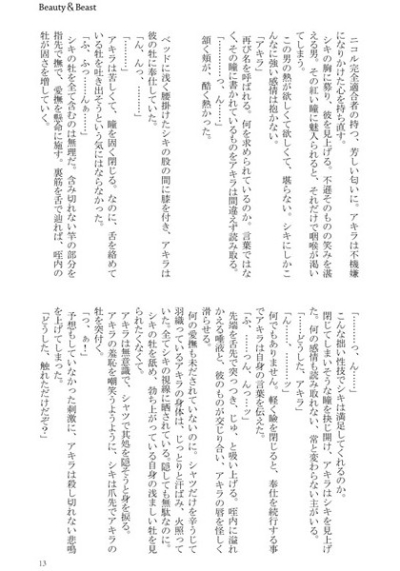 Beauty & Beast
ニコル完全適合者の持つ、芳しい匂いに。アキラは不機嫌
になりかけた心を持ち直す。
シキの胸に募り、彼を見上げる。不遜そのものの笑みを満
える男。その紅い瞳に魅入られると、それだけで咽喉が渇い
てしまう。
この男の熱が欲しくて欲しくて、堪らない。シキにしかこ
んなに強い感情は抱かない。
「アキラ」
再び名を呼ばれる。何を求められているのか。言葉ではな
く、その瞳に書かれているものをアキラは間違えず読み取る。
「………っ、ん……」
頷く頬が、酷く熱かった。
ベッドに浅く腰掛けたシキの股の間に膝を付き、アキラは
彼の牡に奉仕していた。
「ん、んっ……」
「……」
アキラは苦しくて、瞳を固く閉じる。なのに、舌を絡めて
いる牡を吐き出そうという気にはならなかった。
「ふ、ふっ……んぁ……」
シキの牡を全て含むのは無理だ。含み切れない竿の部分を
指先で撫で、愛撫を懸命に施す。裏筋を舌で辿れば、咥内の
牡が固さを増していく。
「……っ、ん……」
こんな拙い性技でシキは満足してくれるのか。
閉じてしまいそうな瞳を抉じ開け、アキラはシキを見上げ
た。何の感情も読み取れない、常と変わらない主がいる。
「……どうした、アキラ」
「ん……。……ッ」
何でもありません。軽く瞼を閉じると、奉仕を続行する事
でアキラは自身の言葉を伝えた。
「ふ、……っん、んっ…ッ」
先端を舌先で突っつき、じゅ、と吸い上げる。咥内に溢れ
かえる唾液と、彼のものが交じり合い、アキラの唇を怪しく
滑らせる。
何の愛撫も未だされていないのに。シャツだけを辛うじて
羽織っているアキラの身体は、じっとりと汗ばみ、火照って
いた。全てシキの視線に晒されている。隠しても無駄なのに。
シキの牡を舐め、勃ち上がっている自身の浅ましい牡を見
られたくなくて。
アキラは無意識で、シャツで其処を隠そうと身を捩る。
アキラの羞恥を嘲笑うように、シキは爪先でアキラの
牡を突付く。
「っ、ぁ！」
予想もしていなかった刺激に、アキラは殺し切れない悲鳴
を上げてしまった。
「どうした、触れただけだぞ？」
13